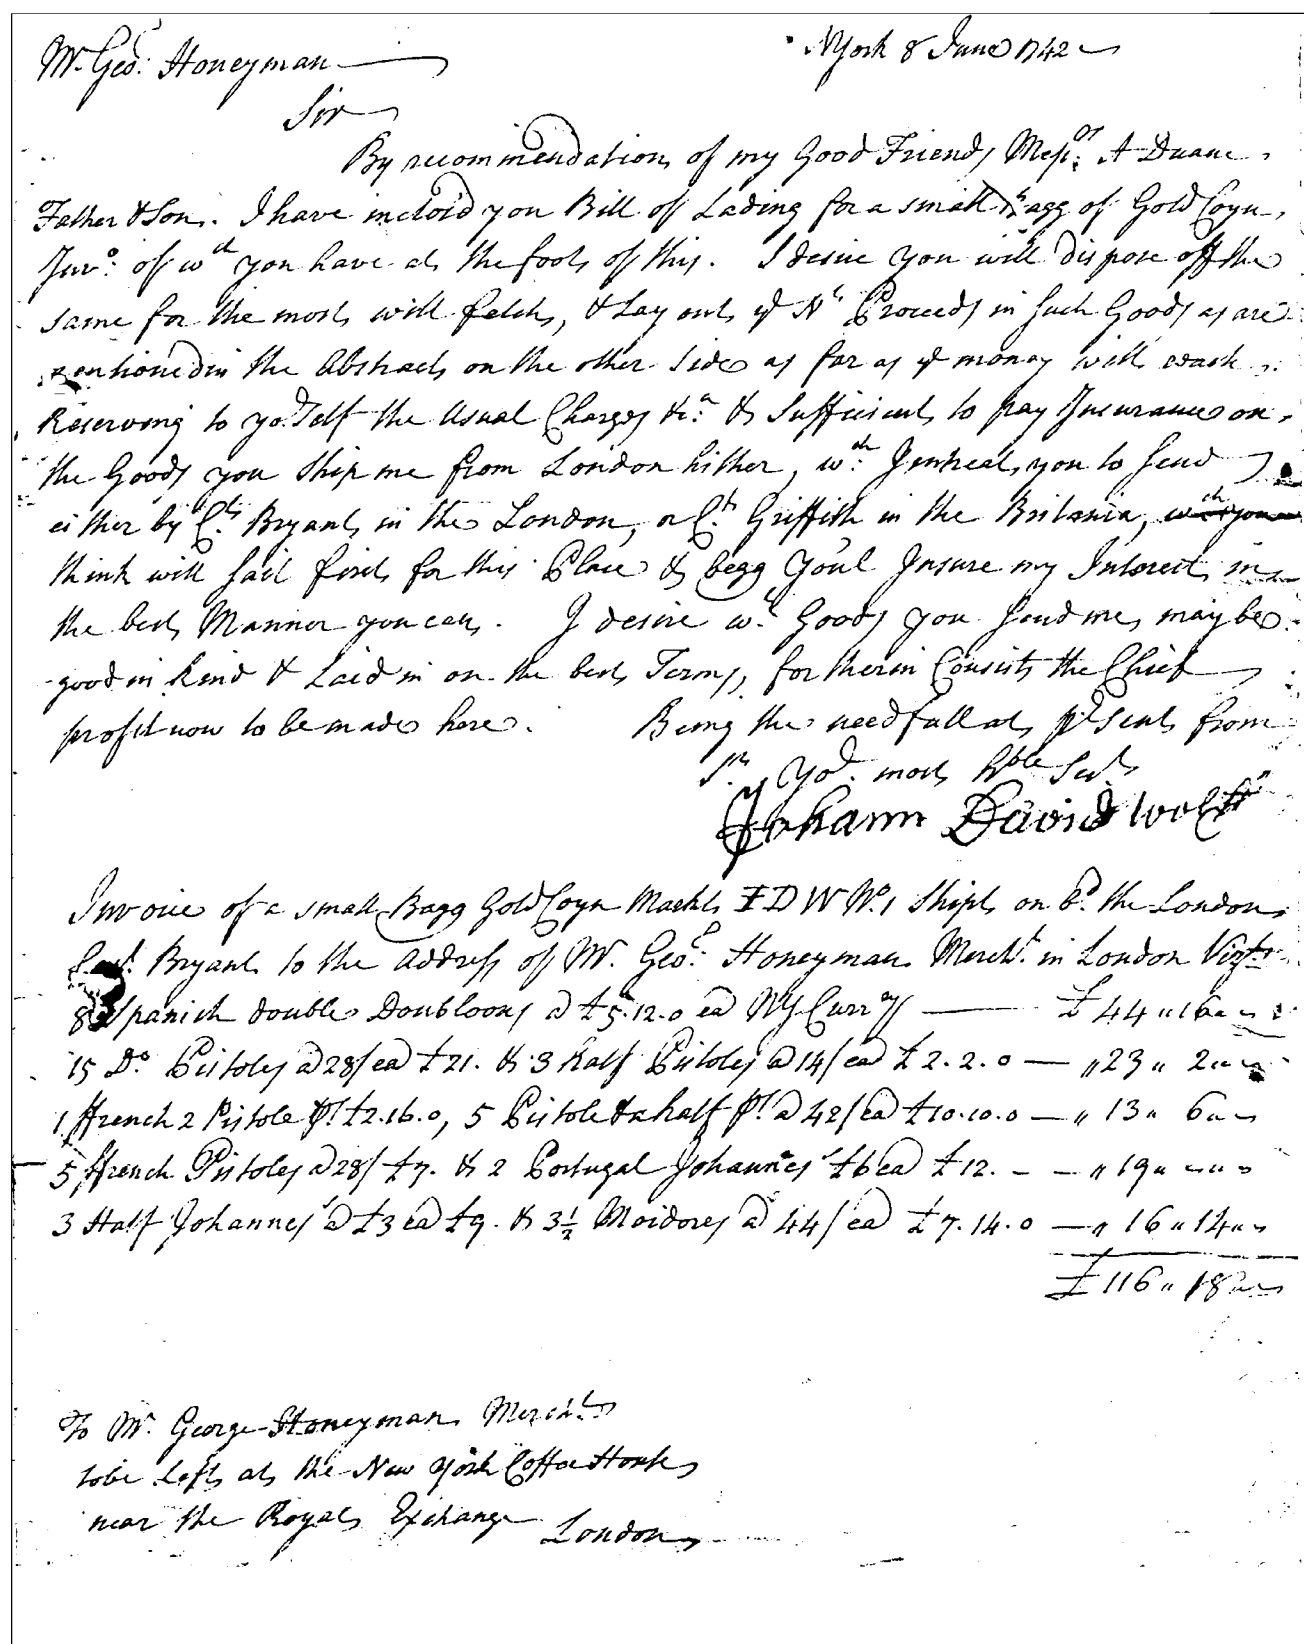 Mr. Geo: Honeyman
NYork 8 June 1742
Sir
By recommendation of my Good Friends Messrs: A Duane
Father & Son. I have inclosd you Bill of Lading for a small Bagg of Gold Coyn,
Invo: of wch you have at the foot of this. I desire you will dispose off the
same for the most will fetch, & Lay out ye Nt Proceeds in such Goods as are
mentioned in the Abstract on the other side as far as ye money will reach
Reserving to yor. Self the Usual Charges &ca: & Sufficient to pay Insurance on
the Goods you Ship me from London hither, wch: I entreat you to send
either by Ct. Bryant in the London, or Ct. Griffith in the Britania, wch you
think will sail first for this Place & begg You'l Insure my Interest in
the best Manner you can. I desire wt. Goods you send me, may be
good in kind & Laid in on the best Terms, for therin Consists the Chief
profit now to be made here. Being the needfull at prsent from
Sr. Yor. most hble Servt
Johann David Wolff
Invoice of a small Bagg Gold Coyn Markt I D W No. 1 Shipt on bd. the London
Capt. Bryant to the Address of Mr. Geo: Honeyman Mercht. in London Vizt.
8 Spanish double Doubloons @ £5.12.0 ea NY Curry £44 " 16 " "
15 Do. Pistoles @ 28/ ea £21. & 3 half Pistoles @ 14/ ea £2.2.0 — " 23 " 2 " "
1 ffrench 2 Pistole Ps. £2.16.0, 5 Pistole & a half Ps. @ 42/ ea £10.10.0 — " 13 " 6 " "
5 ffrench Pistoles @ 28/ £7. & 2 Portugal Johannes' £6 ea £12. — " 19 " " "
3 Half Johannes' @ £3 ea £9. & 3½ Moidores @ 44/ ea £7.14.0 — " 16 " 14 " "
£116 " 18 " "
To Mr. George Honeyman Mercht.
to be Left at the New York Coffee House
near the Royal Exchange
London